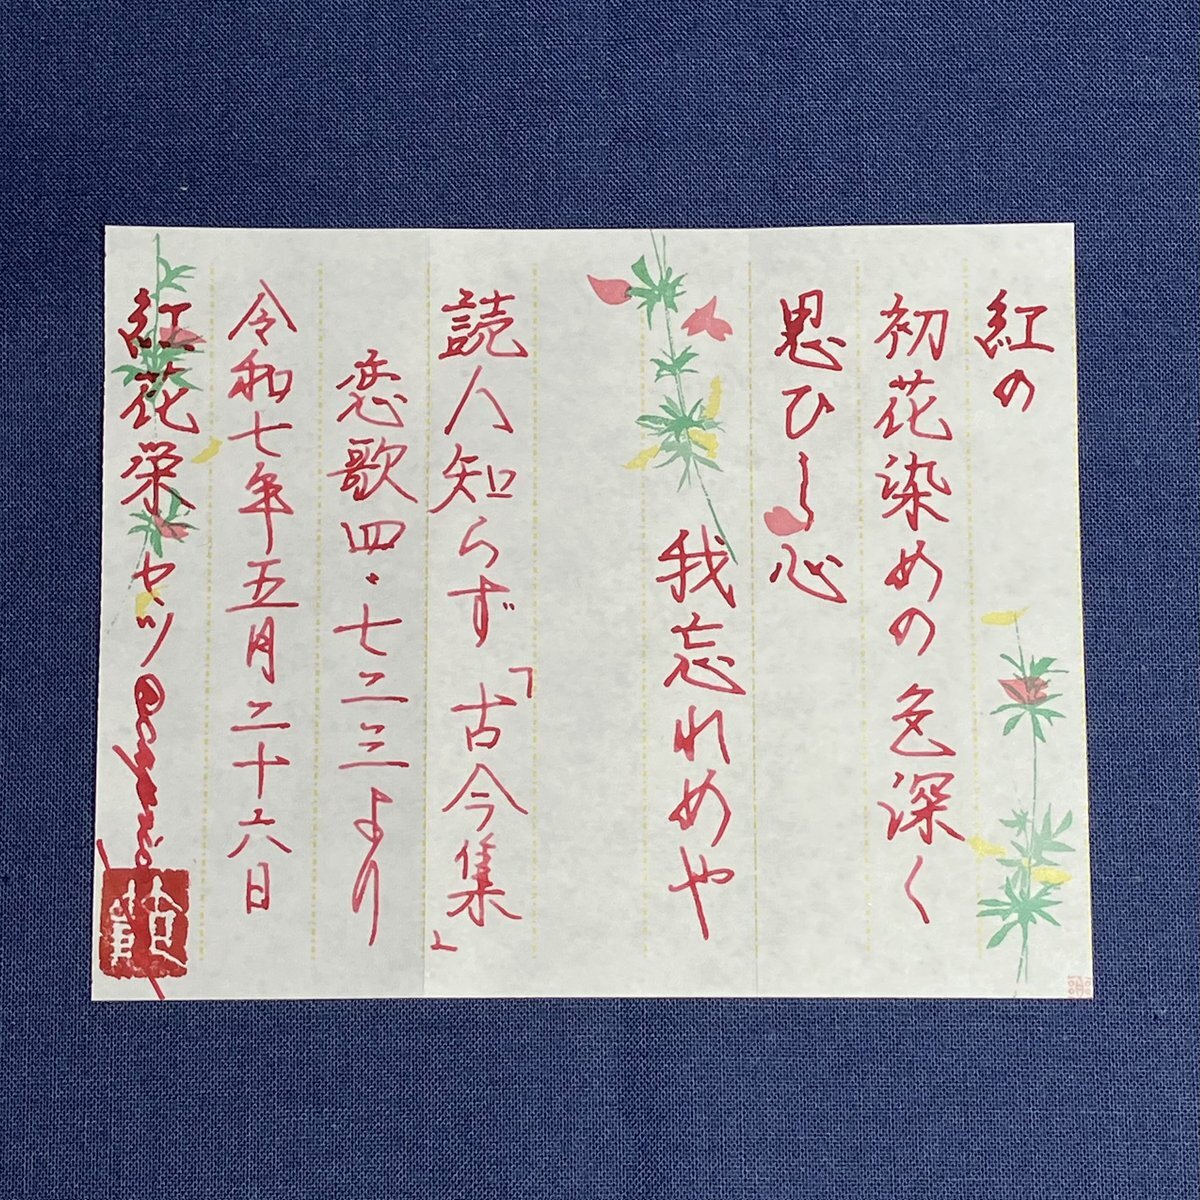 紅の
初花染めの色深く
思ひし心
我忘れめや
読人知らず「古今集」
恋歌四・七二三より
令和七年五月二十六日
紅花栄